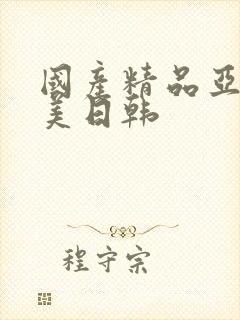 國産精品亞
美日韩
程守宗